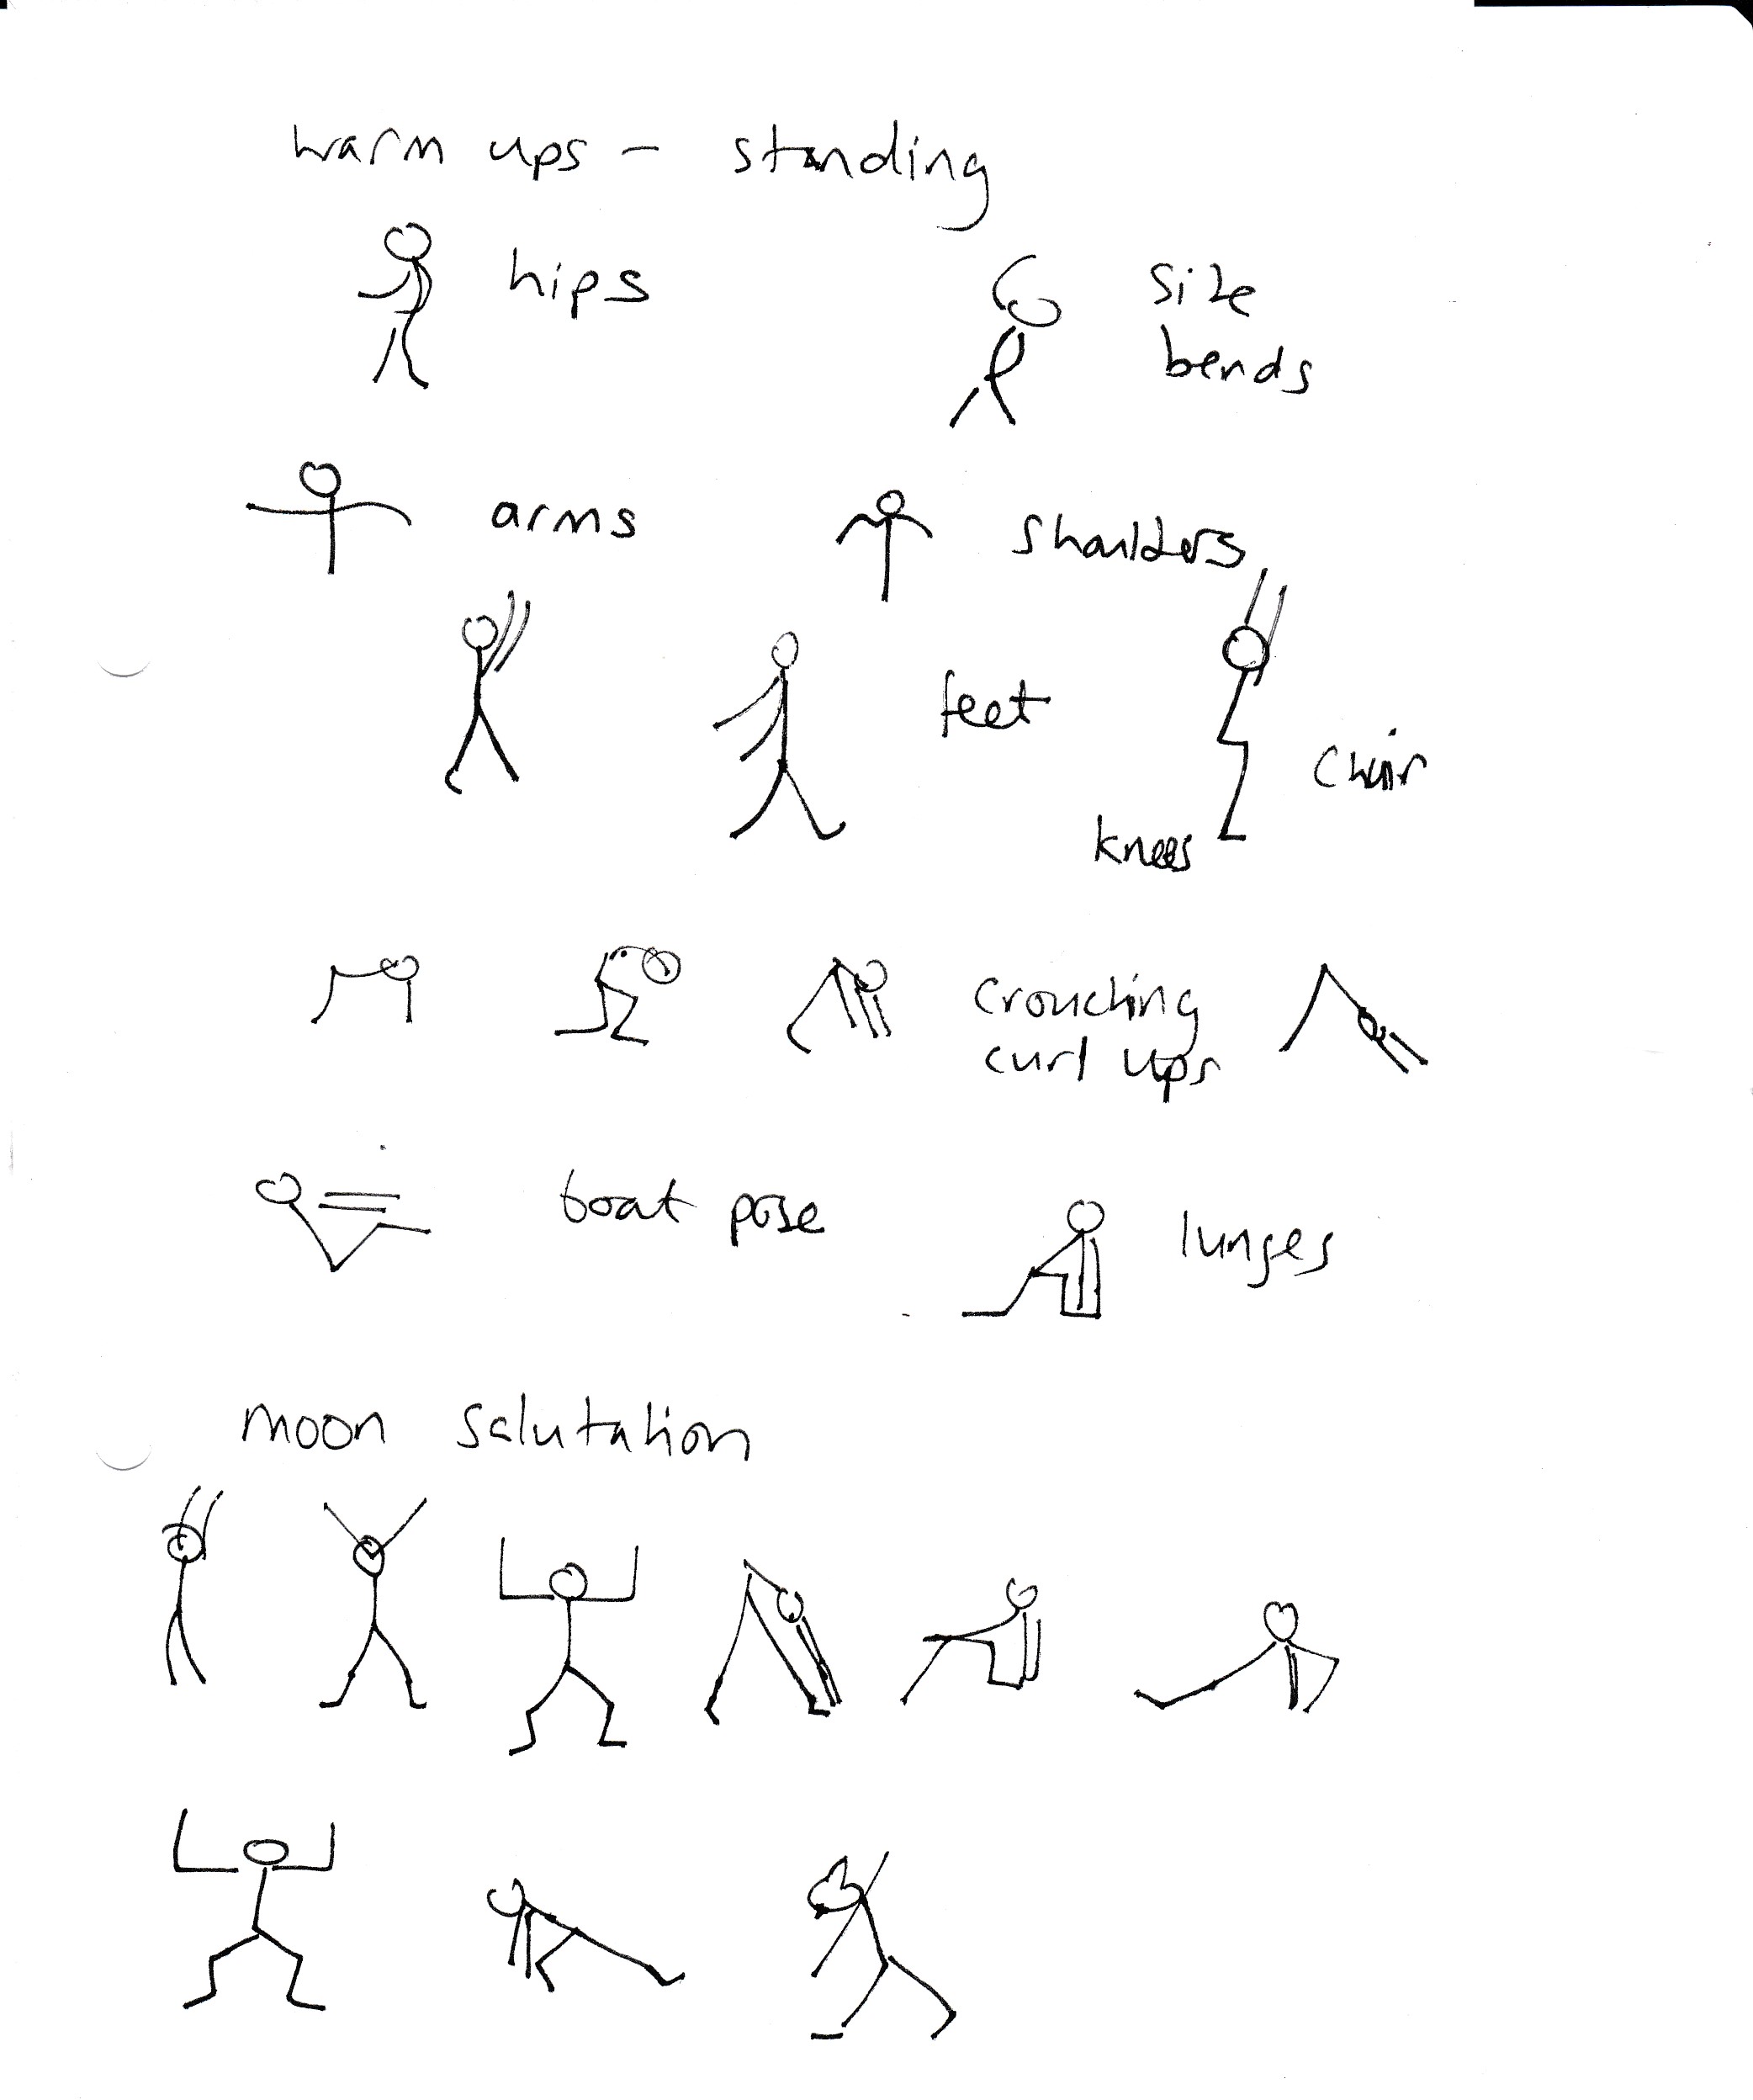 warm ups - standing
hips
side
bends
arms
shoulders
feet
chair
knees
crouching
curl ups
boat pose
lunges
moon salutation